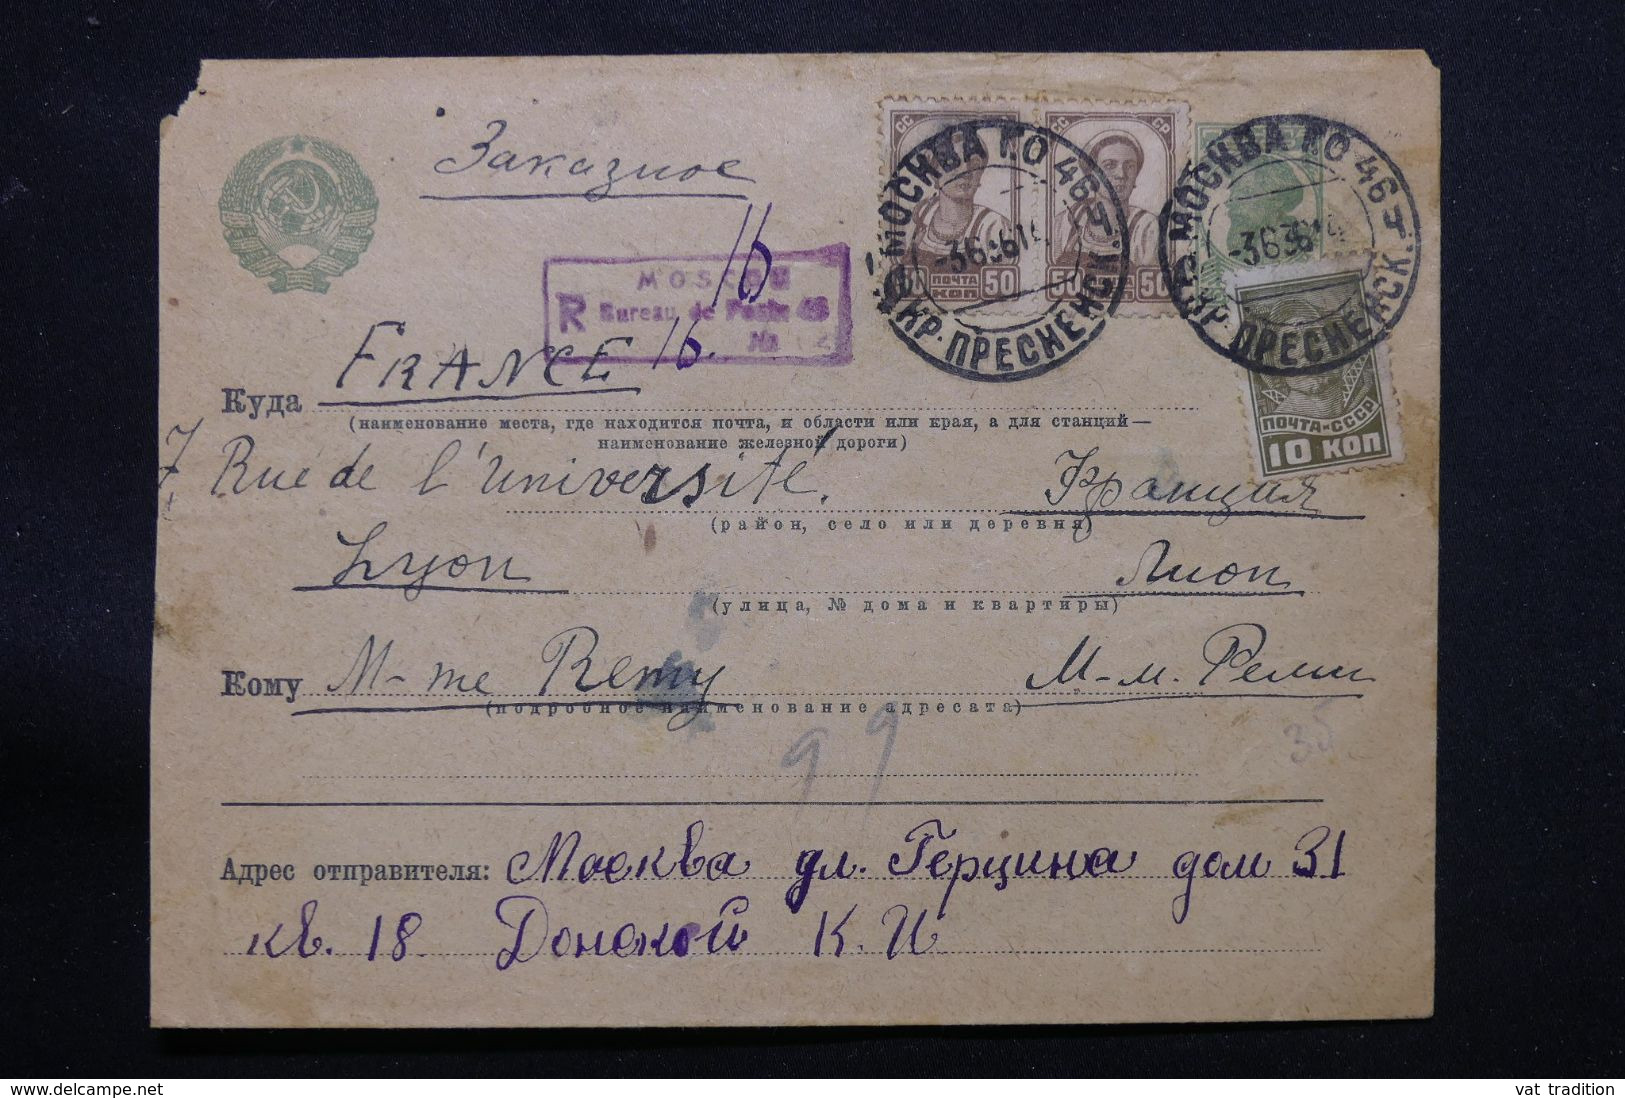 Заказное
16
MOSCOU
R Bureau de Poste 46
№
МОСКВА Г.О 46
-3636
КР. ПРЕСНЕНСК.
МОСКВА Г.О 46
-3636
КР. ПРЕСНЕНСК.
СС СР
50 ПОЧТА КОП 50
50 50
ПОЧТА СССР
10 КОП
Куда FRANCE 16.
(наименование места, где находится почта, и области или края, а для станций—
наименование железной дороги)
7 Rue de l'Université. Франция
(район, село или деревня)
Lyon Лион
(улица, № дома и квартиры)
Кому M-me Remy М-м. Реми
(подробное наименование адресата)
99
35
Адрес отправителя: Москва ул. Герцина дом 31
кв. 18 Донской К. И
www.delcampe.net
vat tradition